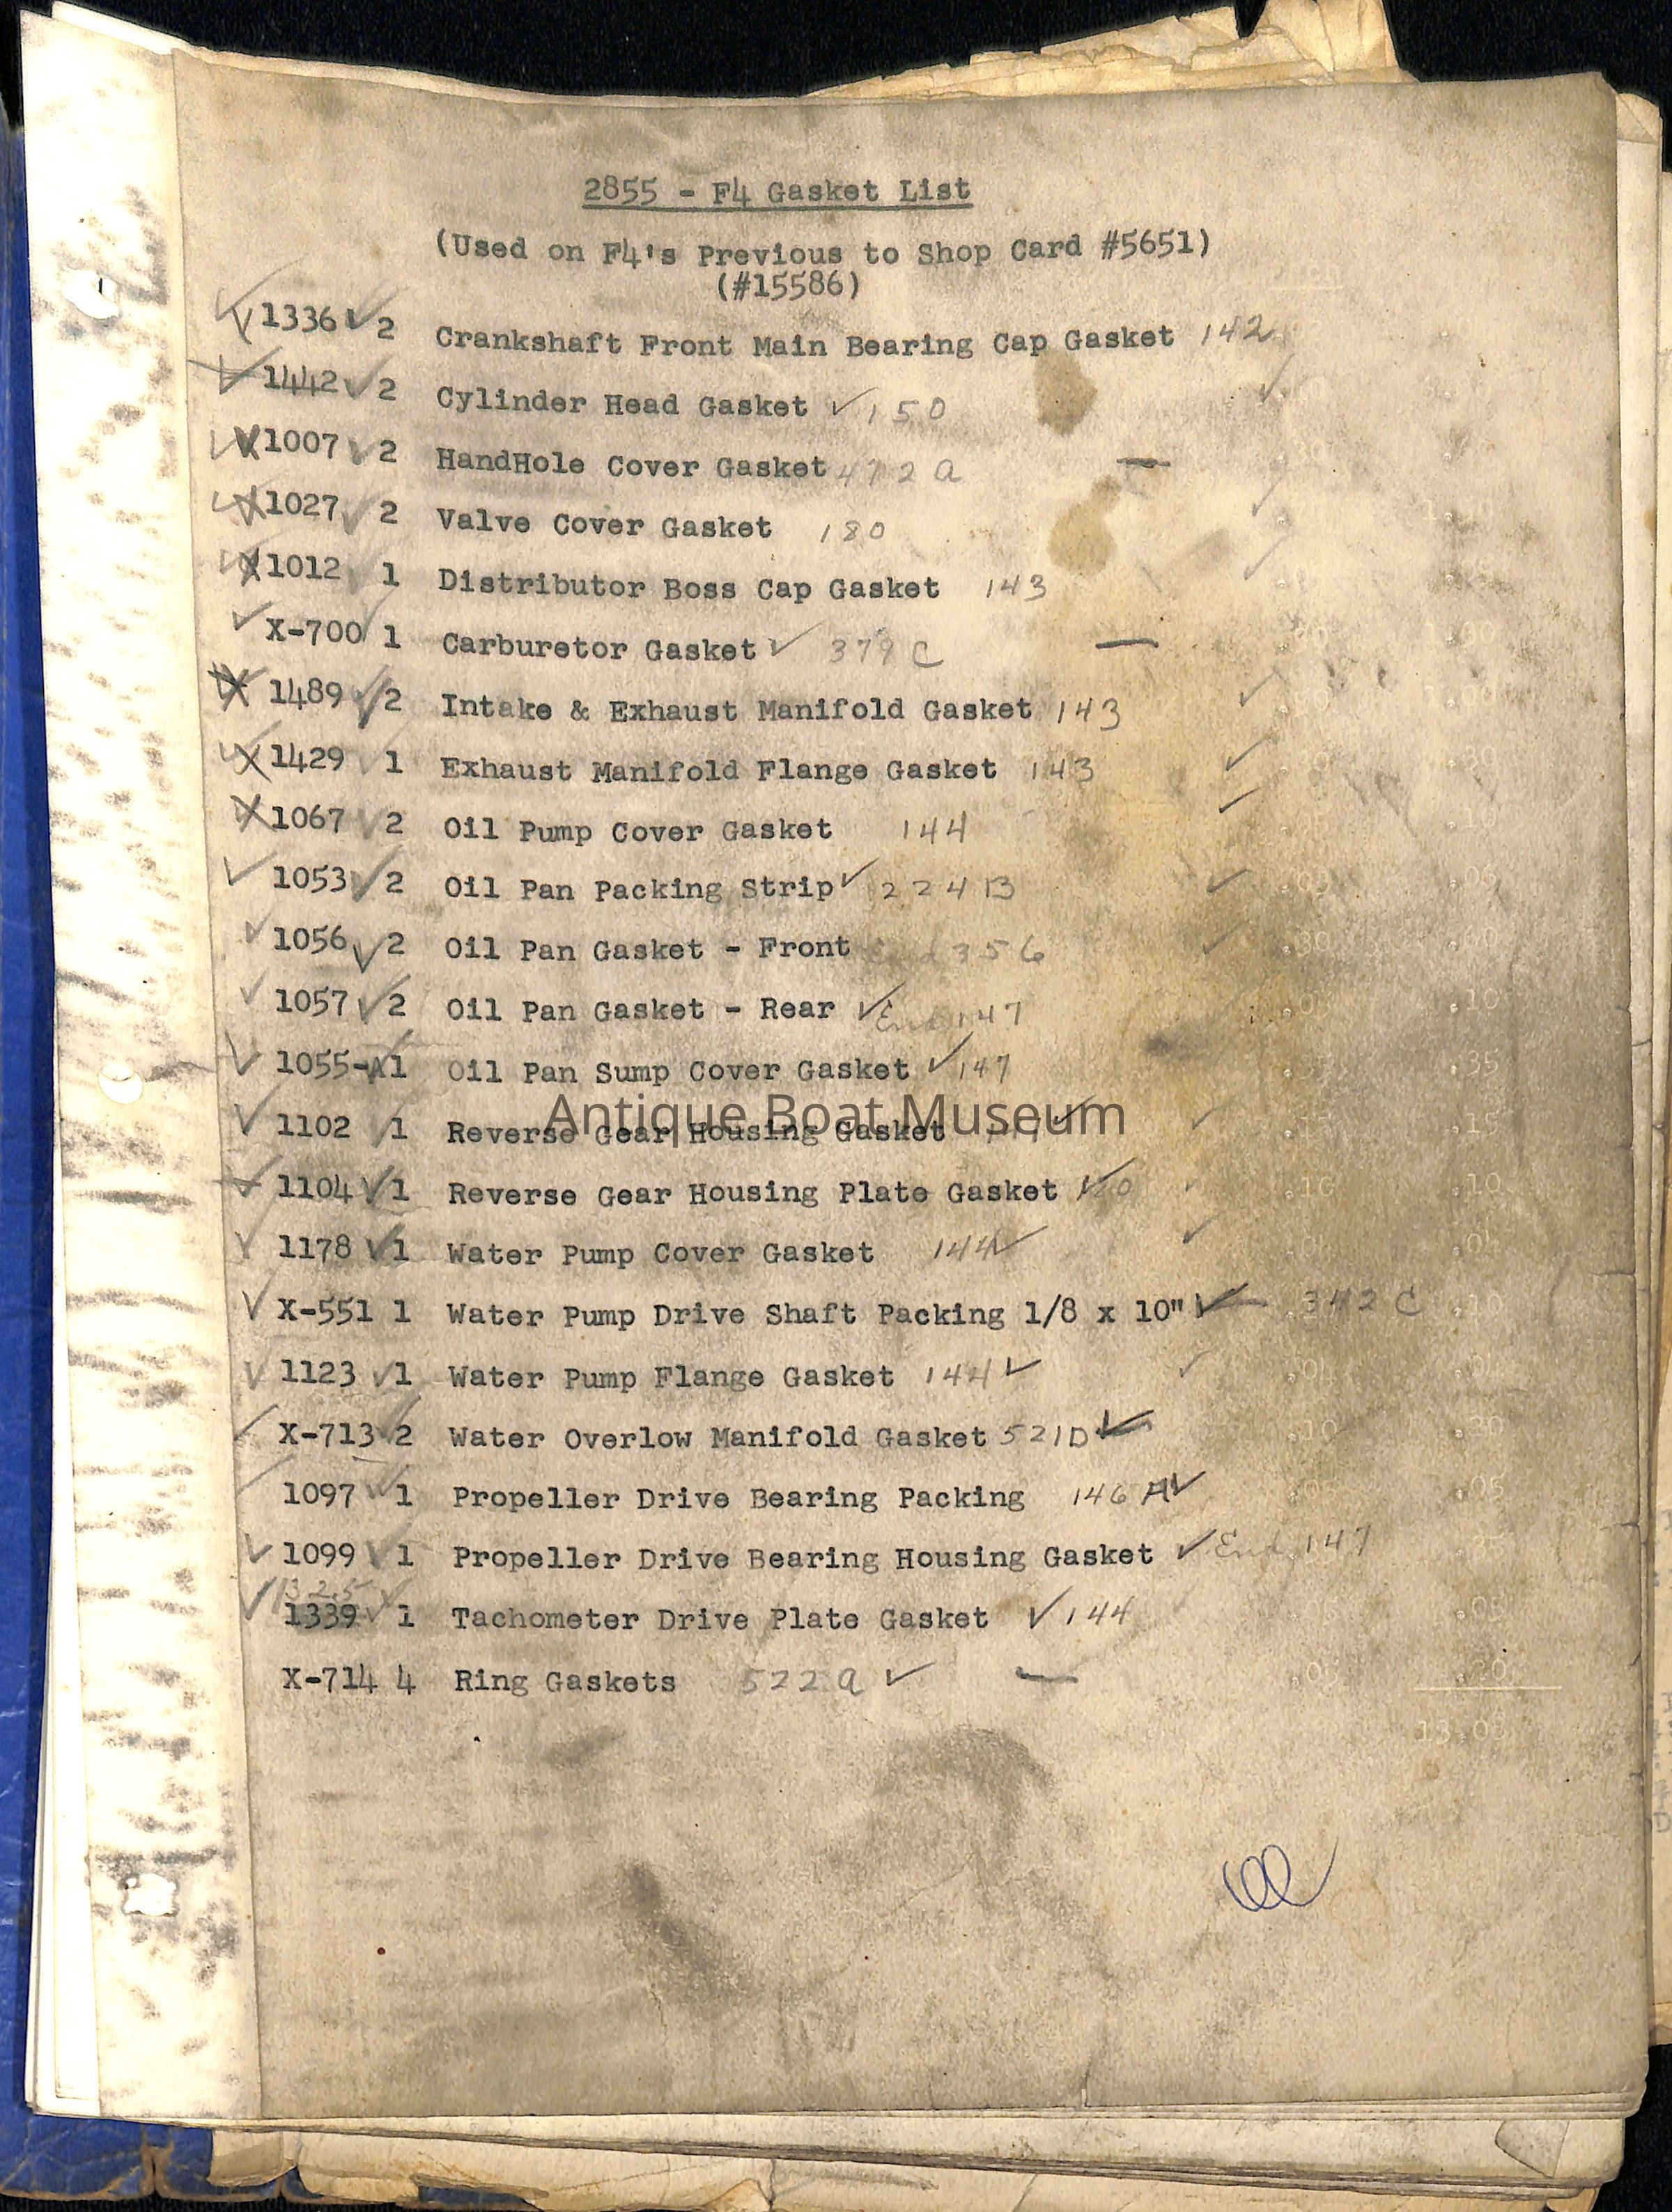 2855 - F4 Gasket List
(Used on F4's Previous to Shop Card #5651)
(#15586)
1336 2 Crankshaft Front Main Bearing Cap Gasket 142
1442 2 Cylinder Head Gasket 150
1007 2 HandHole Cover Gasket 472 a
1027 2 Valve Cover Gasket 180
1012 1 Distributor Boss Cap Gasket 143
X-700 1 Carburetor Gasket 379 C
1489 2 Intake & Exhaust Manifold Gasket 143
1429 1 Exhaust Manifold Flange Gasket 143
1067 2 Oil Pump Cover Gasket 144
1053 2 Oil Pan Packing Strip 224 B .05
1056 2 Oil Pan Gasket - Front End 356
1057 2 Oil Pan Gasket - Rear End 147 .10
1055-A 1 Oil Pan Sump Cover Gasket 147 .35
Antique Boat Museum
1102 1 Reverse Gear Housing Gasket .15
1104 1 Reverse Gear Housing Plate Gasket .10 .10
1178 1 Water Pump Cover Gasket 144
X-551 1 Water Pump Drive Shaft Packing 1/8 x 10" 342 C .10
1123 1 Water Pump Flange Gasket 144
X-713 2 Water Overlow Manifold Gasket 521D .10 .20
1097 1 Propeller Drive Bearing Packing 146 A .05
1099 1 Propeller Drive Bearing Housing Gasket End 147
1325
1339 1 Tachometer Drive Plate Gasket 144
X-714 4 Ring Gaskets 522 a .05 .20